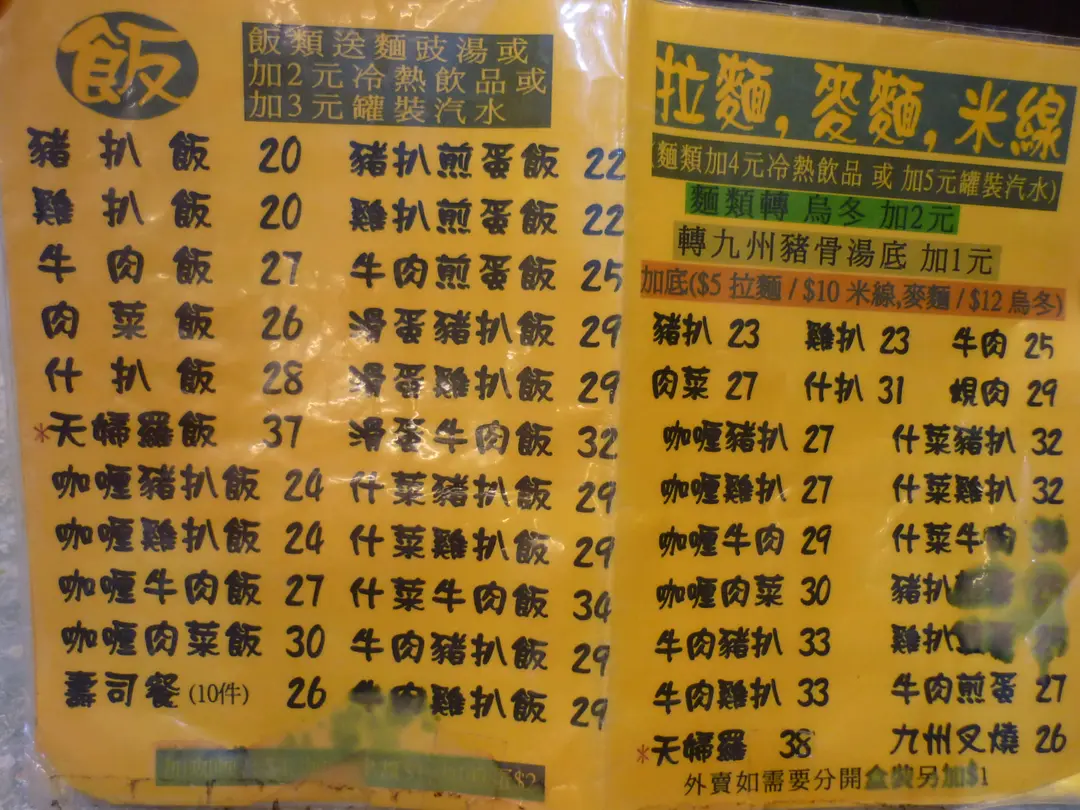 飯
飯類送麵豉湯或
加2元冷熱飲品或
加3元罐裝汽水
豬扒飯 20
雞扒飯 20
牛肉飯 27
肉菜飯 26
什扒飯 28
*天婦羅飯 37
咖喱豬扒飯 24
咖喱雞扒飯 24
咖喱牛肉飯 27
咖喱肉菜飯 30
壽司餐(10件) 26
豬扒煎蛋飯 22
雞扒煎蛋飯 22
牛肉煎蛋飯 25
滑蛋豬扒飯 29
滑蛋雞扒飯 29
滑蛋牛肉飯 32
什菜豬扒飯 29
什菜雞扒飯 29
什菜牛肉飯 34
牛肉豬扒飯 29
牛肉雞扒飯 29
拉麵,麥麵,米線
(麵類加4元冷熱飲品 或 加5元罐裝汽水)
麵類轉 烏冬 加2元
轉九州豬骨湯底 加1元
加底($5 拉麵 / $10 米線,麥麵 / $12 烏冬)
豬扒 23 雞扒 23 牛肉 25
肉菜 27 什扒 31 蜆肉 29
咖喱豬扒 27 什菜豬扒 32
咖喱雞扒 27 什菜雞扒 32
咖喱牛肉 29 什菜牛肉
咖喱肉菜 30 豬扒
牛肉豬扒 33 雞扒
牛肉雞扒 33 牛肉煎蛋 27
*天婦羅 38 九州叉燒 26
外賣如需要分開盒裝另加$1